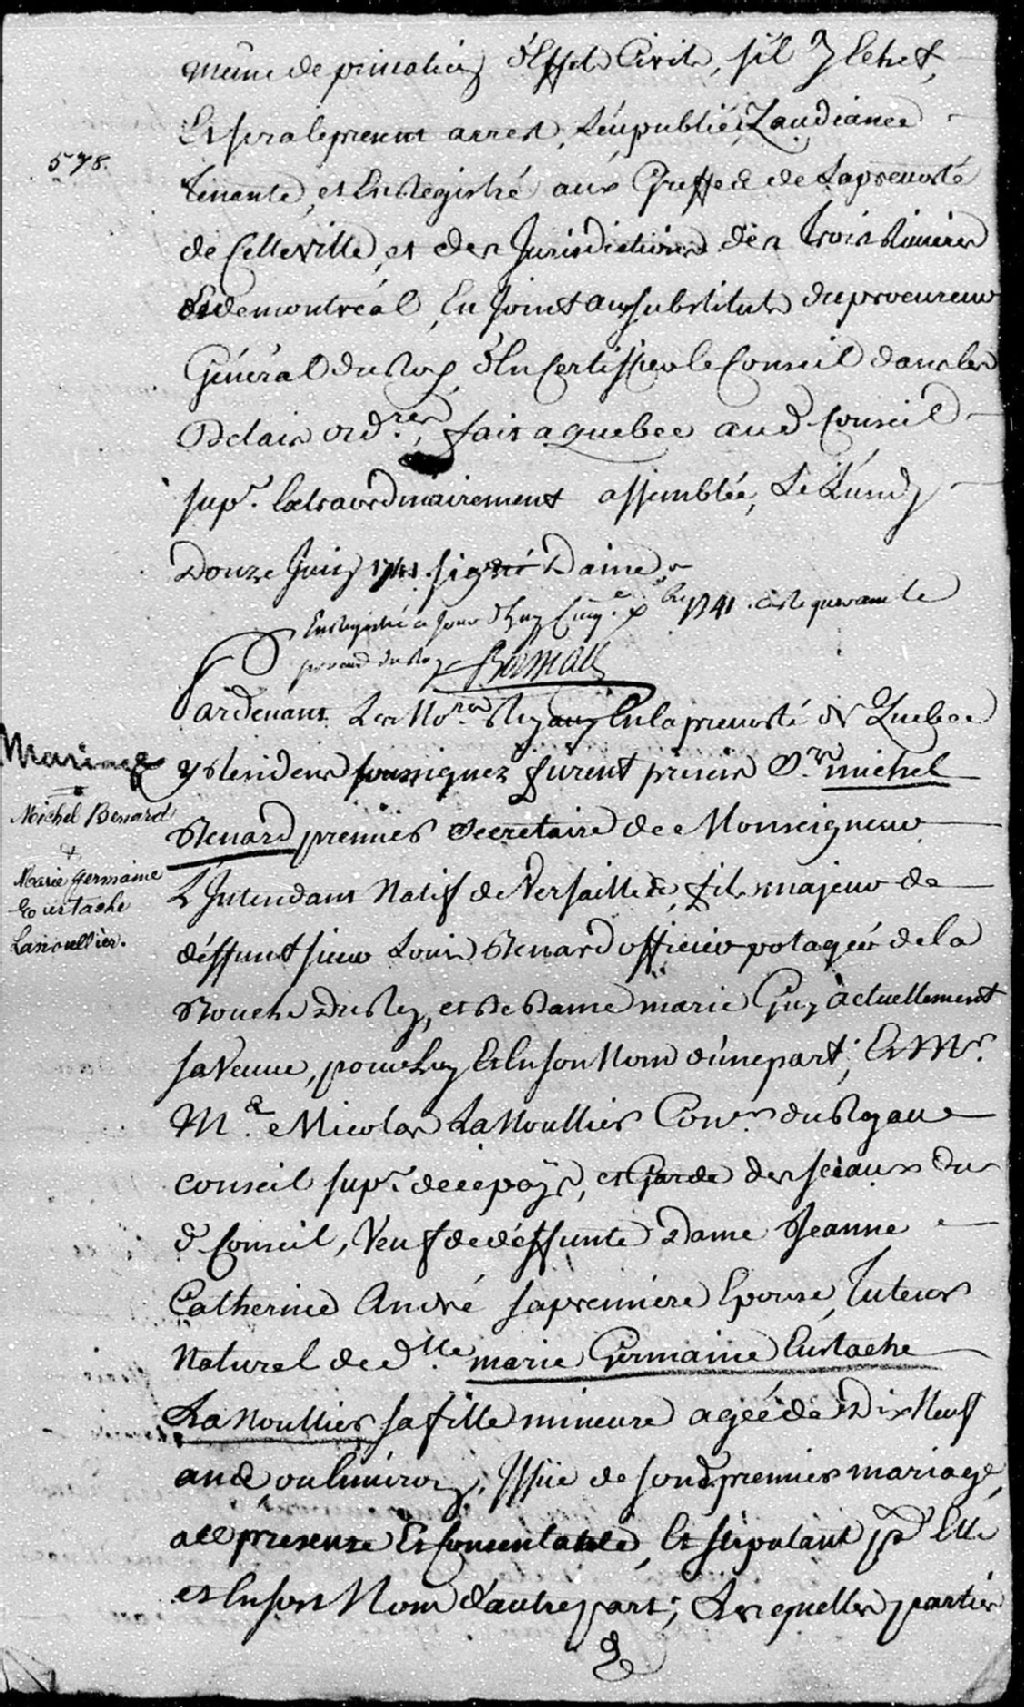 même de privation d'Effets Civils, s'il y Echet,
Et sera le present arrest, Lû, publié, L'audiance
578.
tenante, et Enregistré aux Greffes de La prevosté
de Cette ville, et des Jurisdictions des trois Rivieres
Et de montréal, Enjoint aux substituts du procureur
Général du Roy, d'En Certiffier le Conseil dans les
Delais ord.res, fait a quebec aud. Conseil
sup.r Extraordinairement assemblée, Le Lundy
Douze Juin 1741. signé Daine
Enregistré ce jour d'huy 1741
par nous
Pardevant Les No.res Royaux En la prevosté de Quebec
Mariage
y Residens soussignez furent presens S.r michel
Michel Benard
&
Marie Germaine
Eustache
Lanoullier.
Benard premier Secretaire de Monseigneur
L'Intendant Natif de Versailles, fils majeur de
déffunt sieur Louis Benard officier potager de la
Bouche du Roy, et De Dame marie Guy actuellement
sa Veuve, pour Luy Et En son Nom d'une part; Et M.r
M.e Nicolas LaNoullier Con.er du Roy au
conseil sup.r de ce païs, et Garde des sceaux du
d. Conseil, Veuf de déffunte Dame Jeanne
Catherine André sa premiere Epouse, Tuteur
Naturel de d.lle marie Germaine Eustache
LaNoullier sa fille mineure agée de Dix Neuf
ans ou Environ, Issüe de sond. premier mariage,
a ce presente Et Consentante, Et stipulant p.r Elle
et En son Nom d'autre part; Lesquelles parties